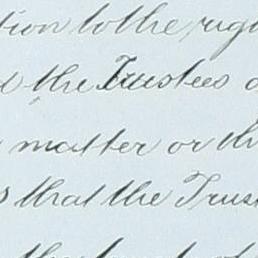 tion to the righ
d the Trustees o
matter or th
s that the Trust